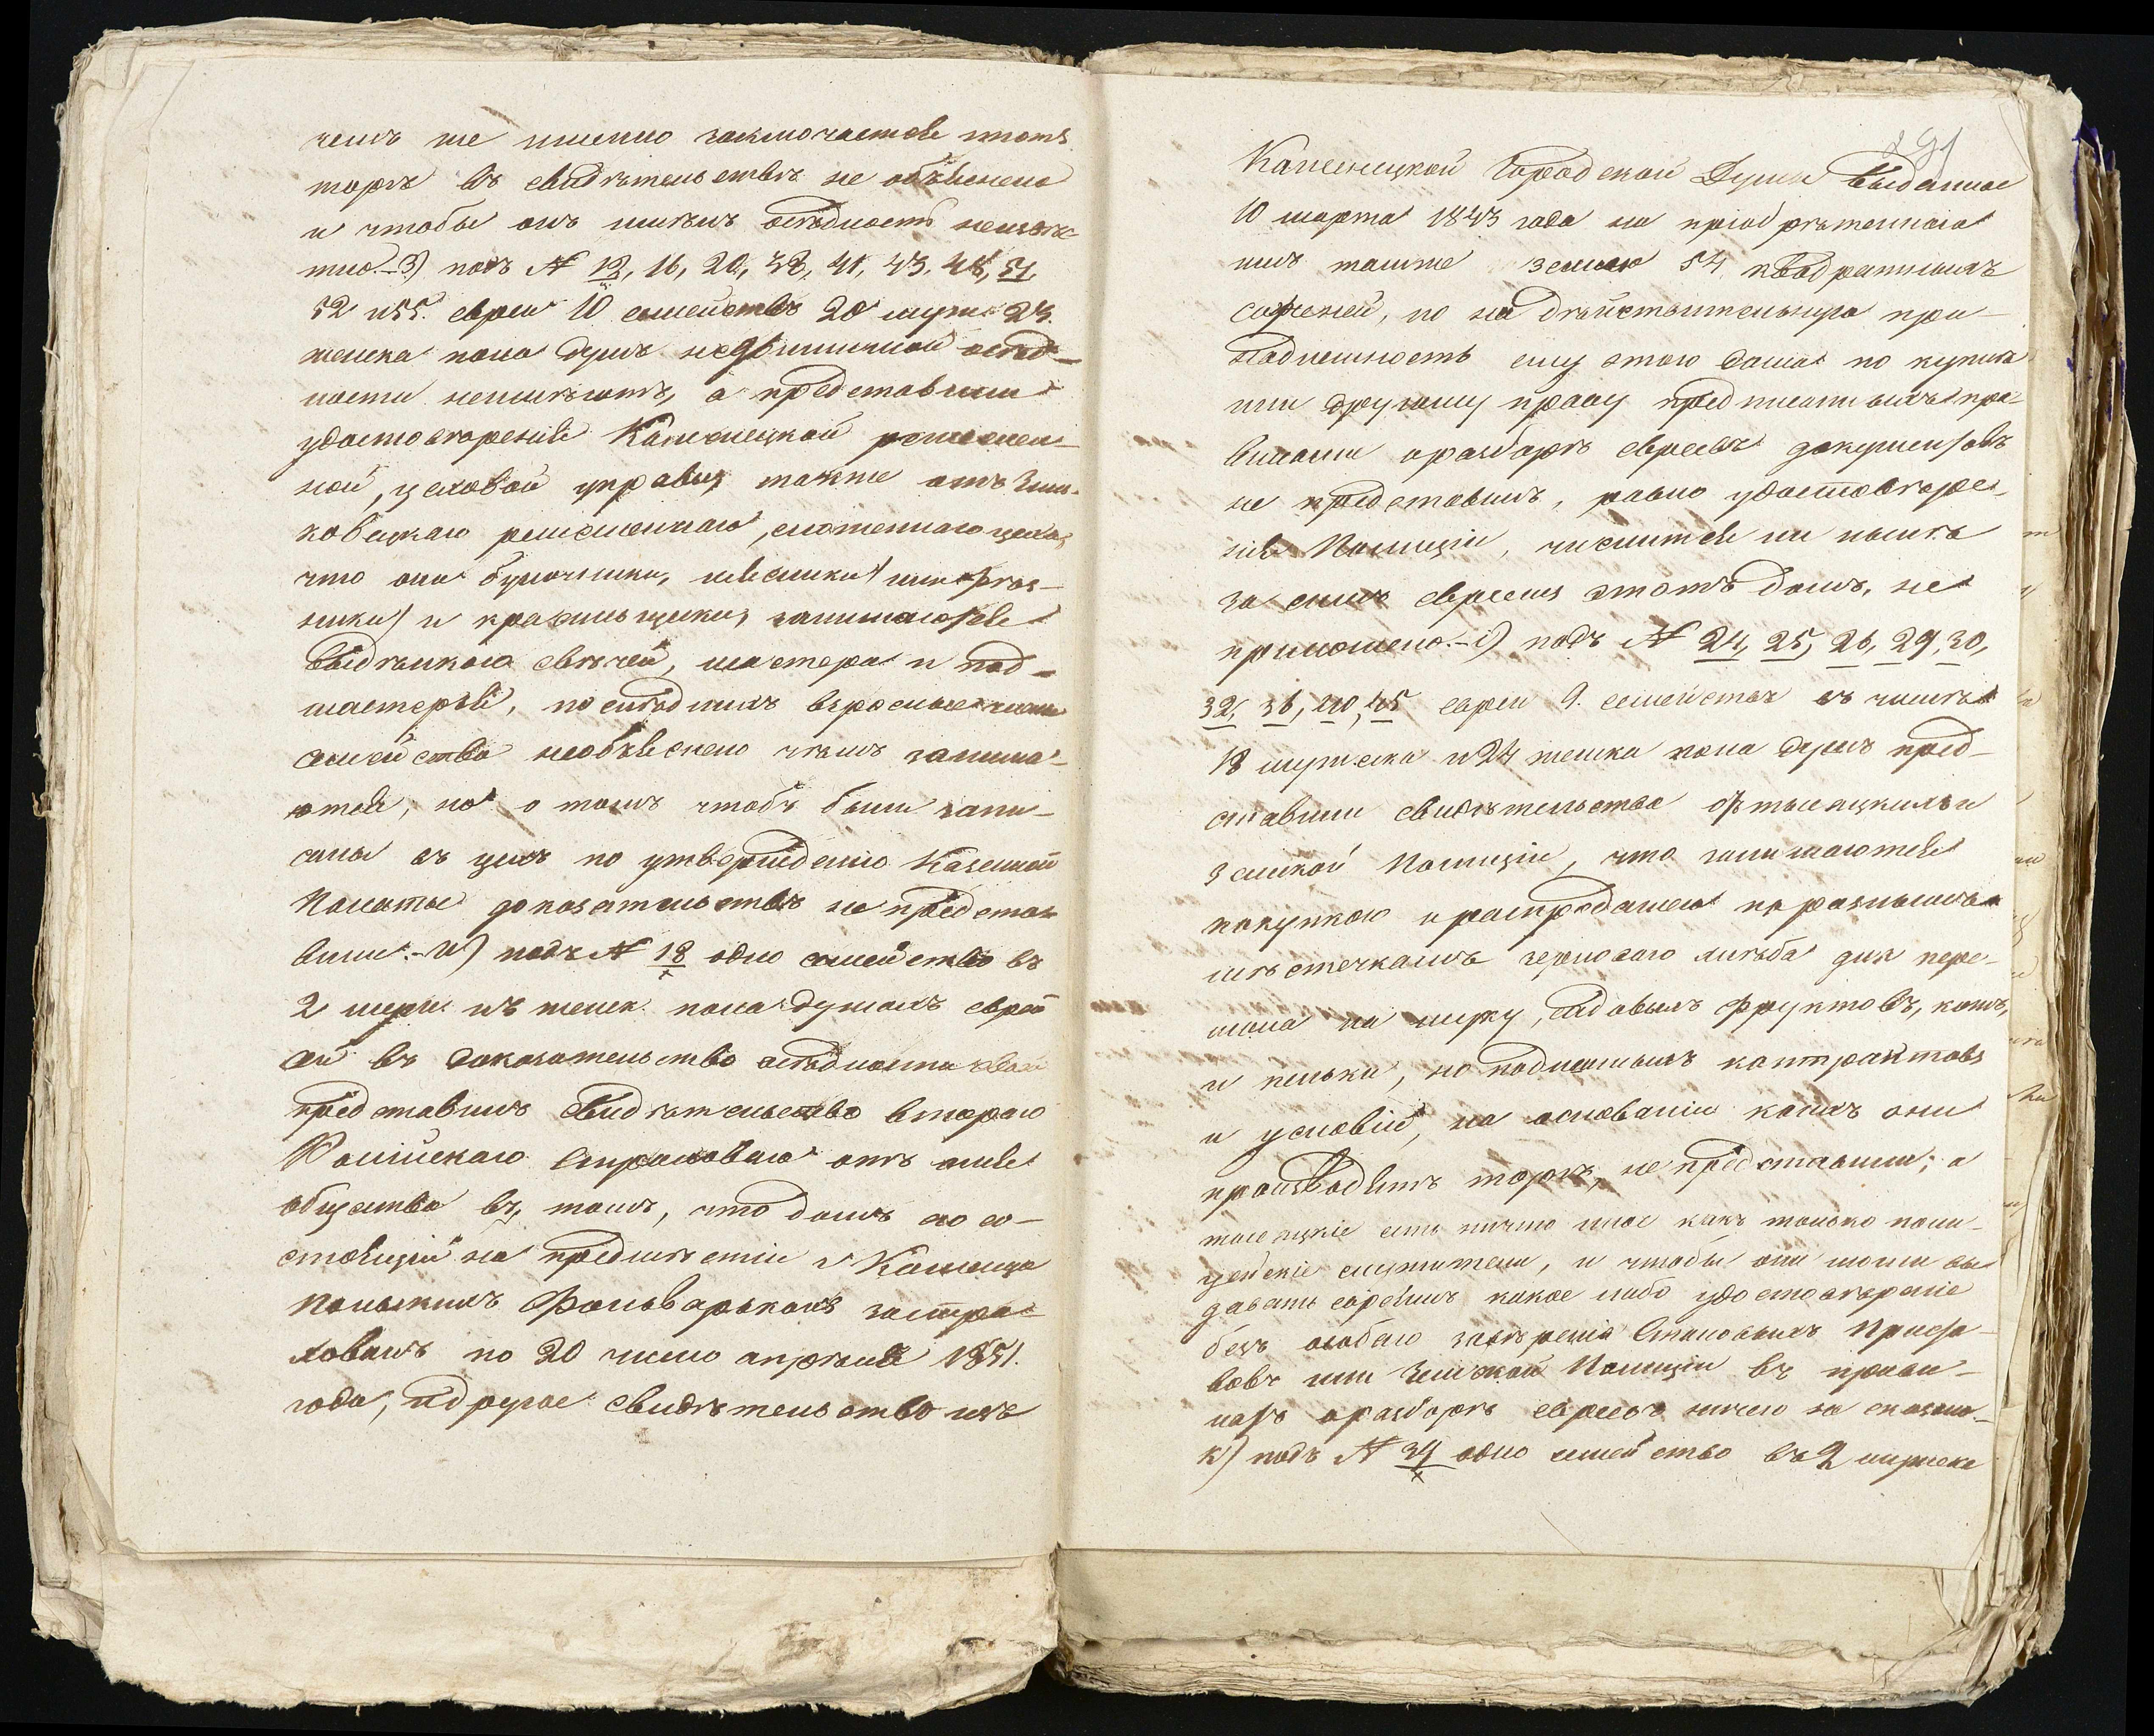 чемъ же именно заключается этотъ
торгъ въ свидѣтельствѣ не объяснено
и чтобы онъ имѣлъ осѣдлость неизвѣс-
тно.- З) подъ № 12, 16, 20, 38, 41, 43, 48, 51,
52 и 55. евреи 10 семействъ 20 муж. 23.
женска пола душъ недвижимой осѣд-
лости неимѣютъ, а представили
удостовѣренія Каменецкой ремеслен-
ной, цеховой управы, также отъ
ковецкаго ремесленнаго, сложеннаго цеха,
что они булочники,
ники и красильщики, занимаются
выдѣлкою свѣчей, мастера и под-
мастерья, послѣднихъ взрослые члены
семейства необъяснено чѣмъ занима-
ются, но о томъ чтобъ были запи-
саны въ цехъ по утвержденію Казенной
Палаты доказательствъ не предста-
вили.- И) подъ № 18 одно семейство въ
2 муж. и 4 женск. пола душахъ евре-
ей въ доказательство осѣдлости своей
представилъ свидѣтельство втораго
Россійскаго Страховаго отъ огня
общества въ томъ, что домъ его со-
стоящій на предмѣстіи г. Каменца
Польскихъ Фольваркахъ застра-
хованъ по 20 число апрѣля 1851.
года, и другое свидѣтельство изъ
291
Каменецкой Городской Думы выданное
10 марта 1843 года на пріобрѣтеннаго
имъ также землю 54, квадратныхъ
саженей, но на дѣйствительную при-
надлежность ему этого дома по куплѣ
или другому праву предписанныхъ пра-
вилами о разборѣ евреевъ документовъ
не представилъ, равно удостовѣре-
нія Полиціи, числится ли нынѣ
за симъ евреемъ этотъ домъ, не
приложено.- i) подъ № 24, 25, 26, 29, 30,
32, 36, 40, 45 евреи 9. семействъ въ числѣ
18 мужеска и 24 женска пола душъ пред-
ставили свидѣтельства отъ тысяцкихъ и
Земской Полиціи, что занимаются
покупкою и распродажею по разнымъ
мѣстечкамъ зерноваго хлѣба для пере-
мола на муку, садовыхъ фруктовъ, кожъ,
и пеньки, но подлинныхъ контрактовъ
и условій, на основаніи коихъ они
производятъ торгъ, не представили; а
тысяцкіе есть ничто иное какъ только поли-
цейскіе служители, и чтобы они могли вы-
давать евреямъ какое либо удостовѣреніе
безъ особаго завѣренія Становыхъ Приста-
вовъ или Земской Полиціи въ прави-
лахъ о разборѣ евреевъ ничего не сказано.-
к) подъ № 34 одно семейство въ 2 мужеска